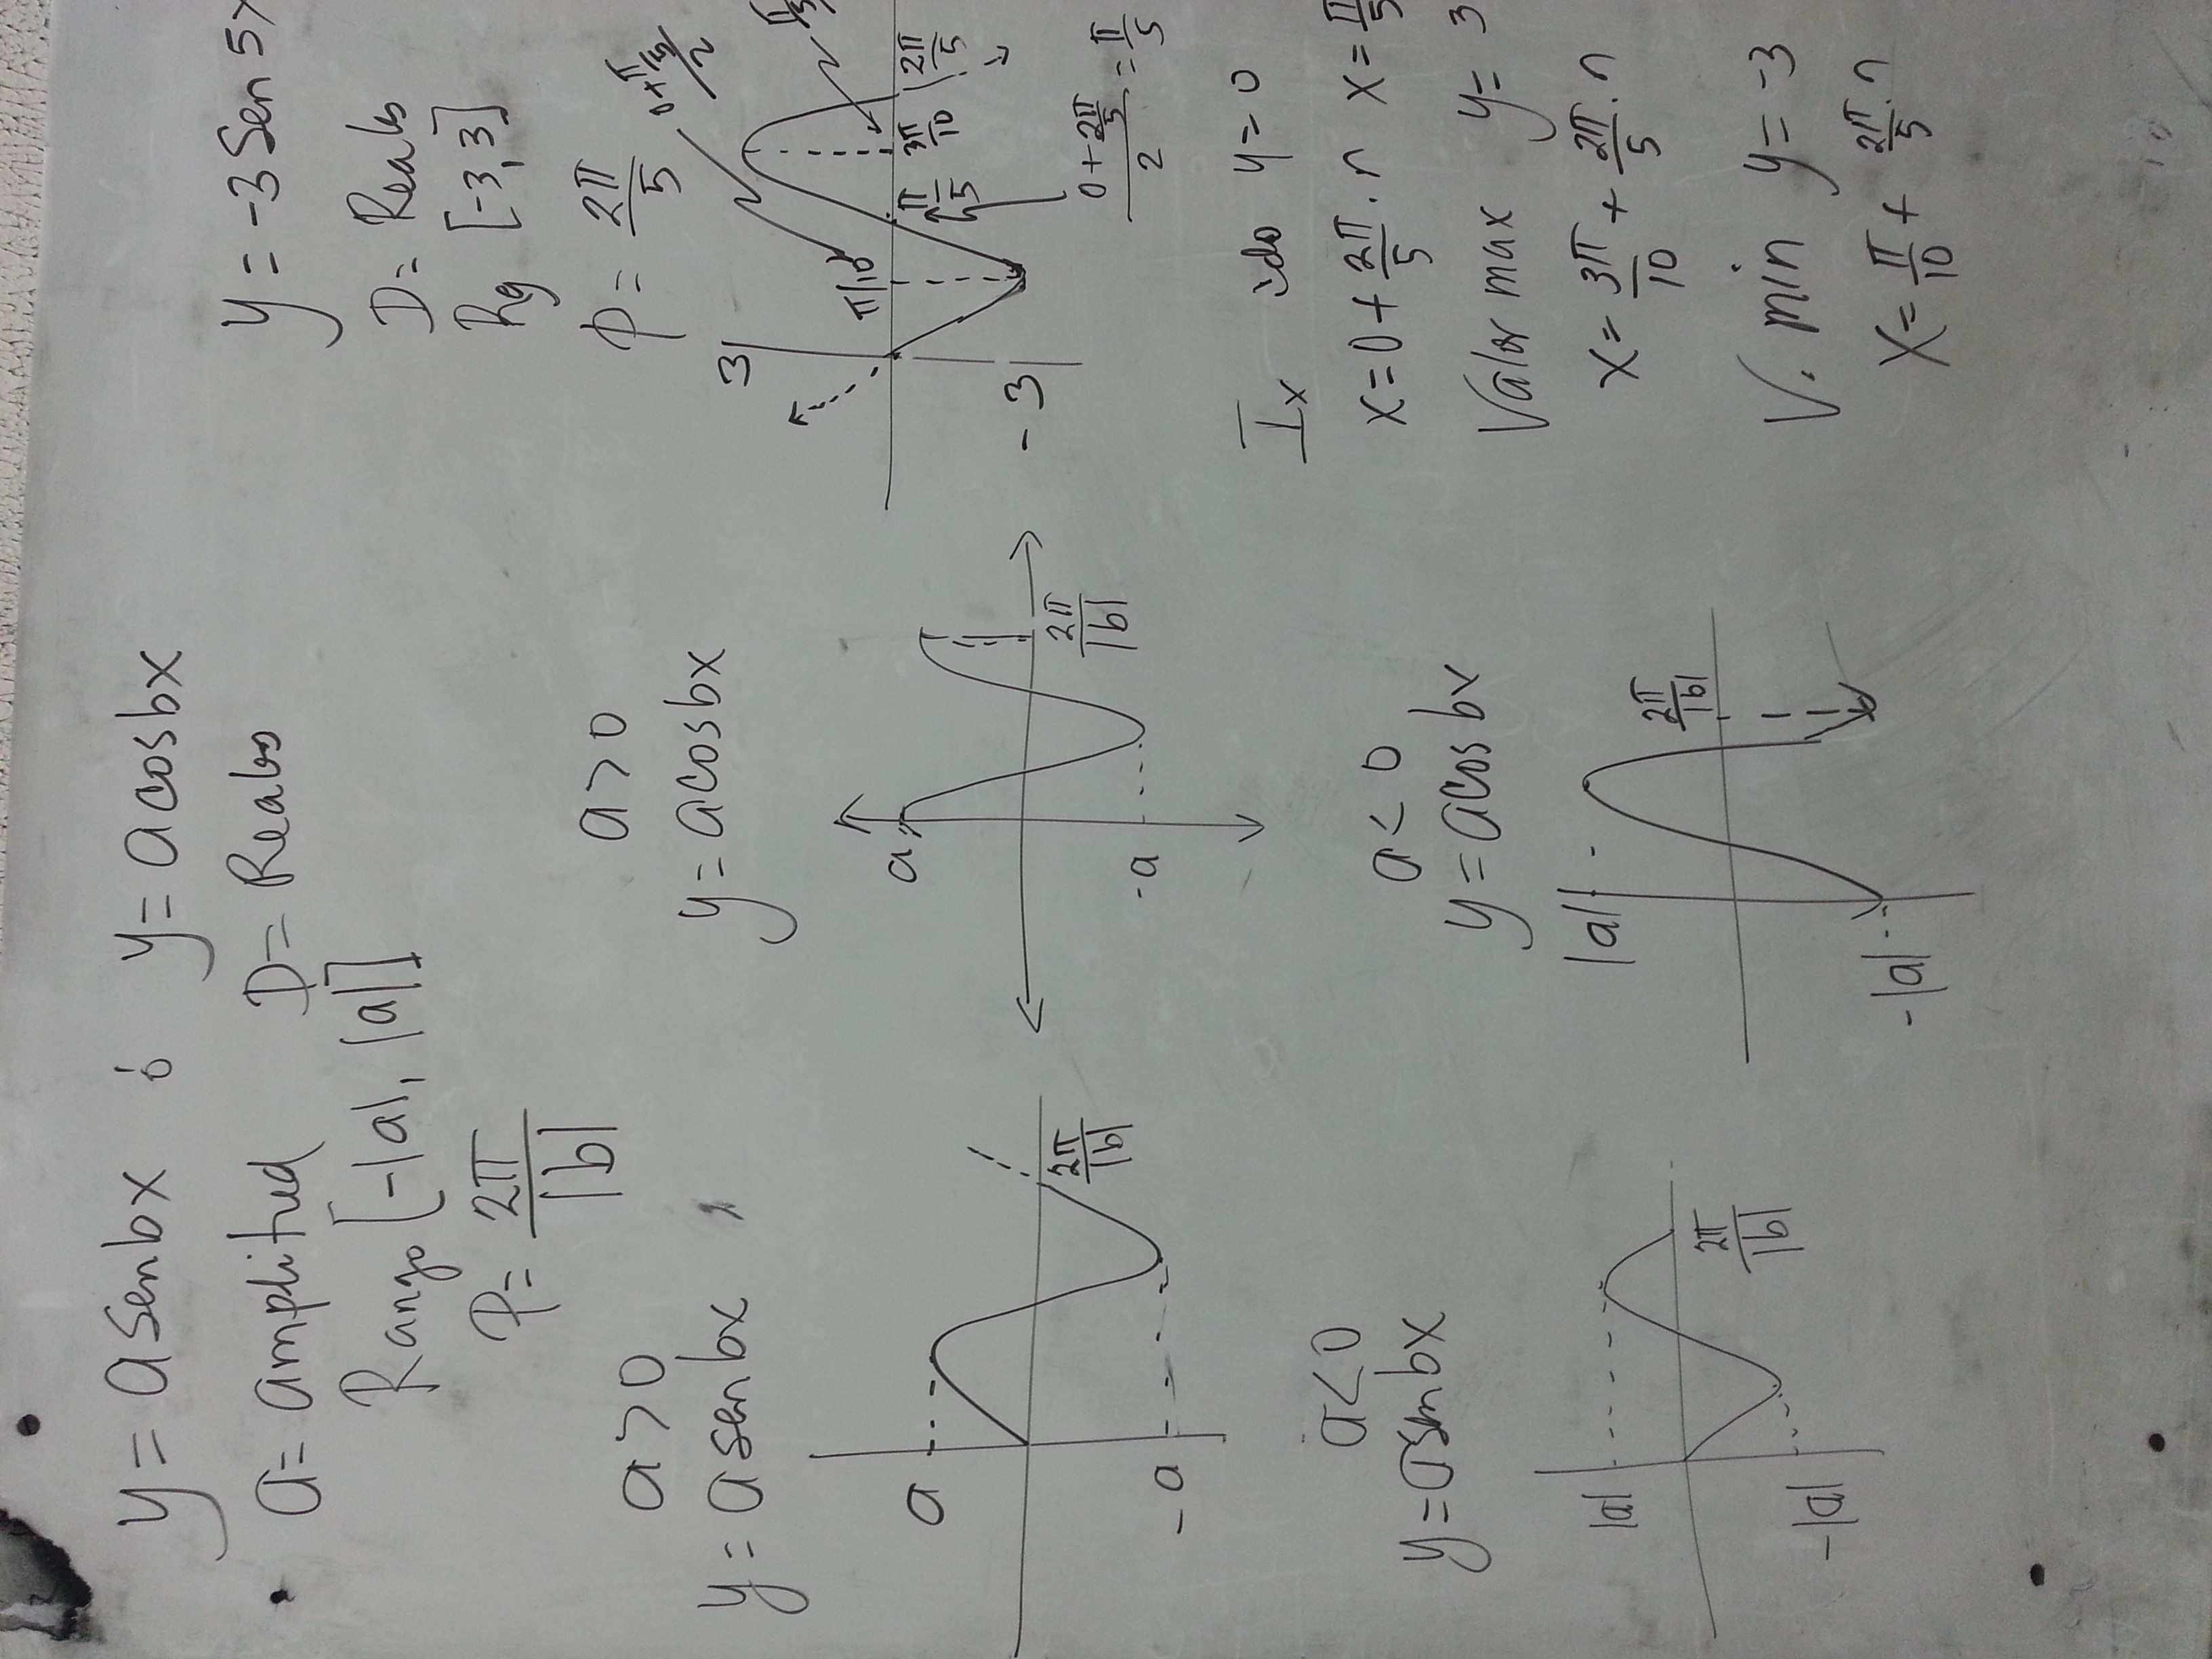 y = a sen bx ó y = a cos bx
a = amplitud D = Reales
Rango [-|a|, |a|]
P = 2π/|b|
a > 0
y = a sen bx
a
-a
2π/|b|
a < 0
y = a sen bx
|a|
-|a|
2π/|b|
a > 0
y = a cos bx
a
-a
2π/|b|
a < 0
y = a cos bx
|a|
-|a|
2π/|b|
y = -3 Sen 5x
D = Reales
Rg [-3, 3]
P = 2π/5
3
-3
π/10
π/5
3π/10
2π/5
(0 + 2π/5)/2 = π/5
Ix y = 0
x = 0 + 2π/5 . n x = π/5
Valor max y = 3
x = 3π/10 + 2π/5 . n
V. min y = -3
x = π/10 + 2π/5 . n